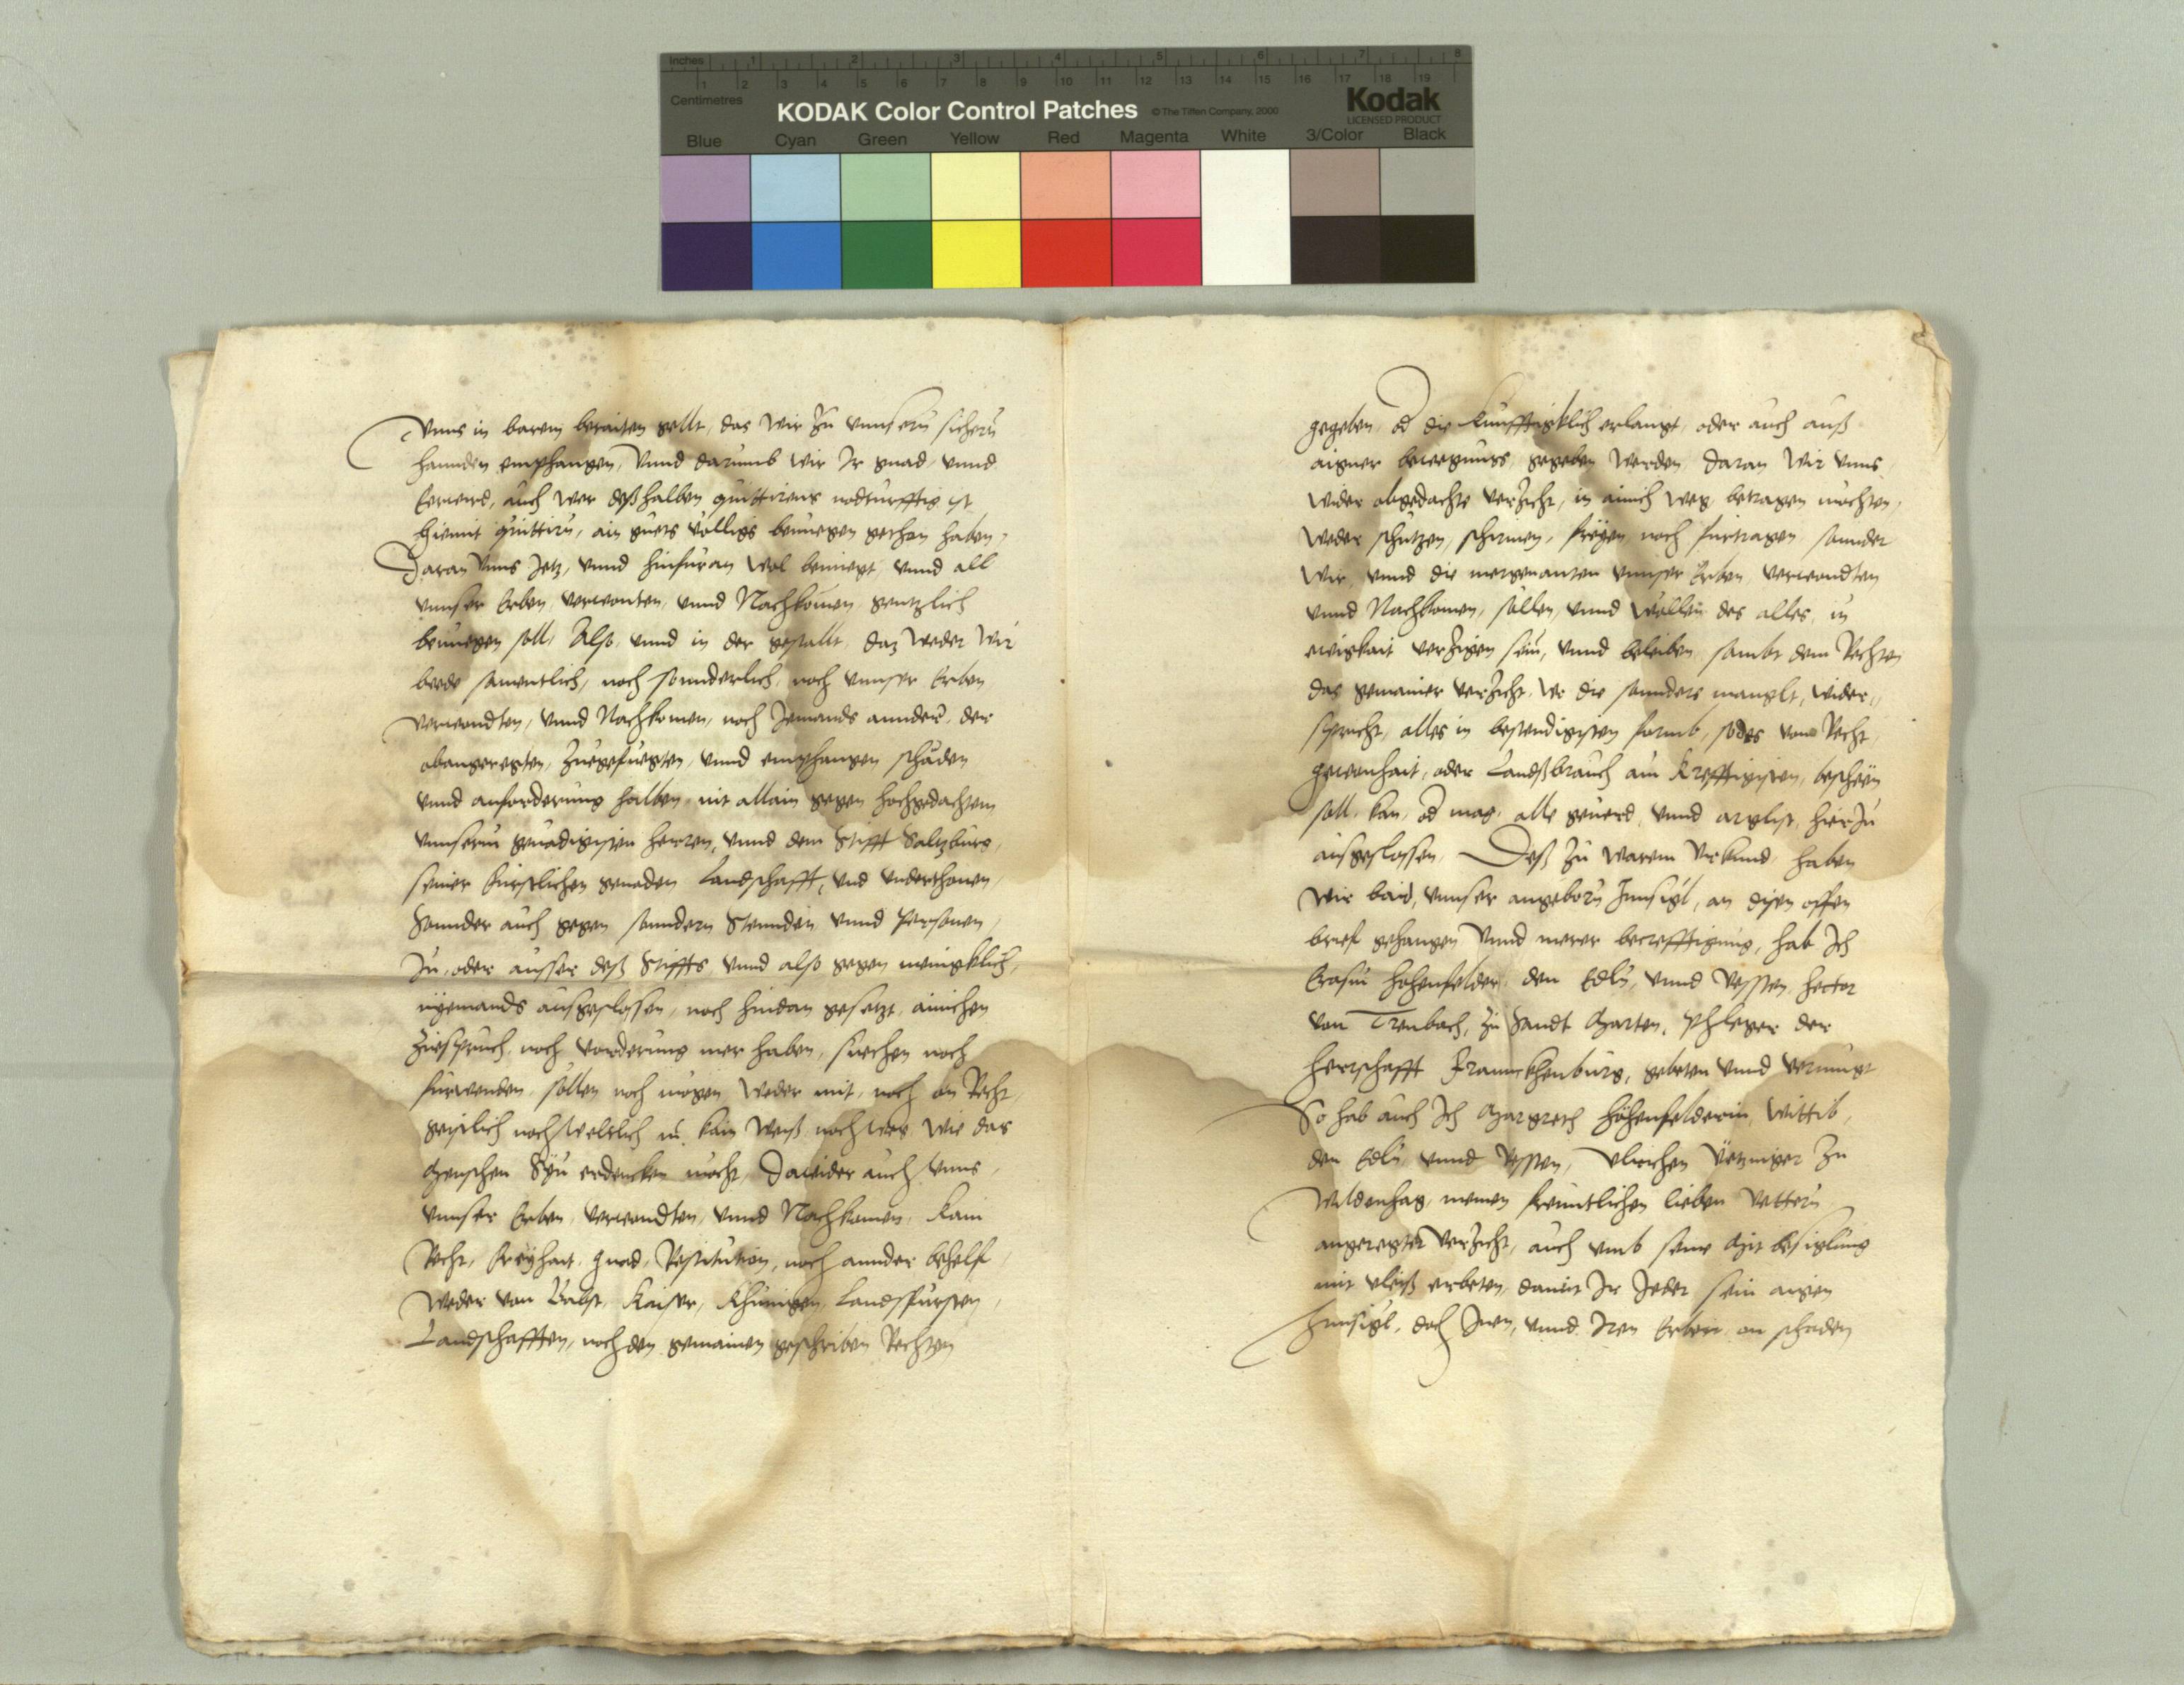 Inches 1 2 3 4 5 6 7 8
1 2 3 4 5 6 7 8 9 10 11 12 13 14 15 16 17 18 19
Centimetres
KODAK Color Control Patches © The Tiffen Company, 2000
Kodak
LICENSED PRODUCT
Blue Cyan Green Yellow Red Magenta White 3/Color Black
Vnns in barem beraiten gellt, das wir zu vnnsern sichern
hannden emphangen, Vnnd darumb wir Ir gnad, vnnd
auch wer deßhalben quittirens nodturfftig ist
hiemit quittirn, ain guets völligs benuegen gethan haben,
Daran Vnns Jetz, vnnd hinfuran wol benuegt, vnnd all
vnnser Erben, verwonten, vnnd Nachkomen gentzlich
benuegen soll, Also, vnnd in der gestallt, daz weder wir
bede samentlich, noch sonnderlich, noch vnnser Erben
verwondten, vnnd Nachkomen, noch Jemands annder, der
obangeregten, zuegefuegten, vnnd emphangen schäden
vnnd anforderung halben, nit allain gegen hochgedachtem
vnnserm genädigisten herren, vnnd dem Stifft Saltzburg,
seiner fürstlichen genaden Landschafft, vnd vnderthonen,
Sonnder auch gegen sonndern Stennden vnnd personen,
In, oder ausser deß Stiffts, vnnd also gegen menigklich,
nyemands ausgeslossen, noch hindan gesetzt, ainichen
zuespruch, noch vorderung mer haben, suechen noch
fürwenden, sollen noch mögen, weder mit, noch on Recht,
geistlich noch weltlich in kain weiß noch weg, wie das
Menschen Syn erdencken mocht, Dawider auch vnns,
vnnser Erben, verwondten, vnnd Nachkomen, kain
Recht, freyhait, gnad, Restitution, noch annder behelf,
weder von Babst, Kaiser, Khünigen, Landsfürsten,
Landschafften, noch den gemainen geschriben Rechten
gegeben, od die kunfftigklich erlangt, oder auch auß
aigner bewegnuss, gegeben werden, daran wir vnns,
wider obgedachte verzicht, in ainich weg, betragen mochten,
weder schützen, schirmen, freyen noch fürtragen, sonnder
wir, vnnd die vnnser Erben, verwondten
vnnd Nachkomen, sollen, vnnd wellen des alles, in
ewigkait verzigen sein, vnnd beleiben, sambt dem Rechten
das gemainer verzicht, wo die sonnders manglt, wider=
spricht, alles in bestendigisten formb, so des von Recht,
gewonhait, oder Landßbrauch am krefftigisten, beschehen
soll, kan, od mag, alle geuerd, vnnd arglist, hierzu
ausgeslossen, Deß zu warem vrkund, haben
wir baid, vnnser angeborn Innsigl, an disen offen
brief gehangen, Vnnd merer becrefftigung, hab Ich
Erasm Hohenfelder, den Edln, vnnd vessten, hector
von Trenbach, zu Sandt Marten, phleger der
herrschafft Frannckhenburg, gebeten vnnd vermugt
So hab auch Ich Margreth Hohenfelderin, wittib,
den Edln, vnnd vessten, vlrichen zu
wildenhag, meinen freuntlichen lieben vettern
angeregter verzicht, auch vmb seine Mit besiglung
mit vleiß erbeten, damit Ir Jeder sein aigen
Innsigl, doch Inen, vnnd Iren Erben, on schaden